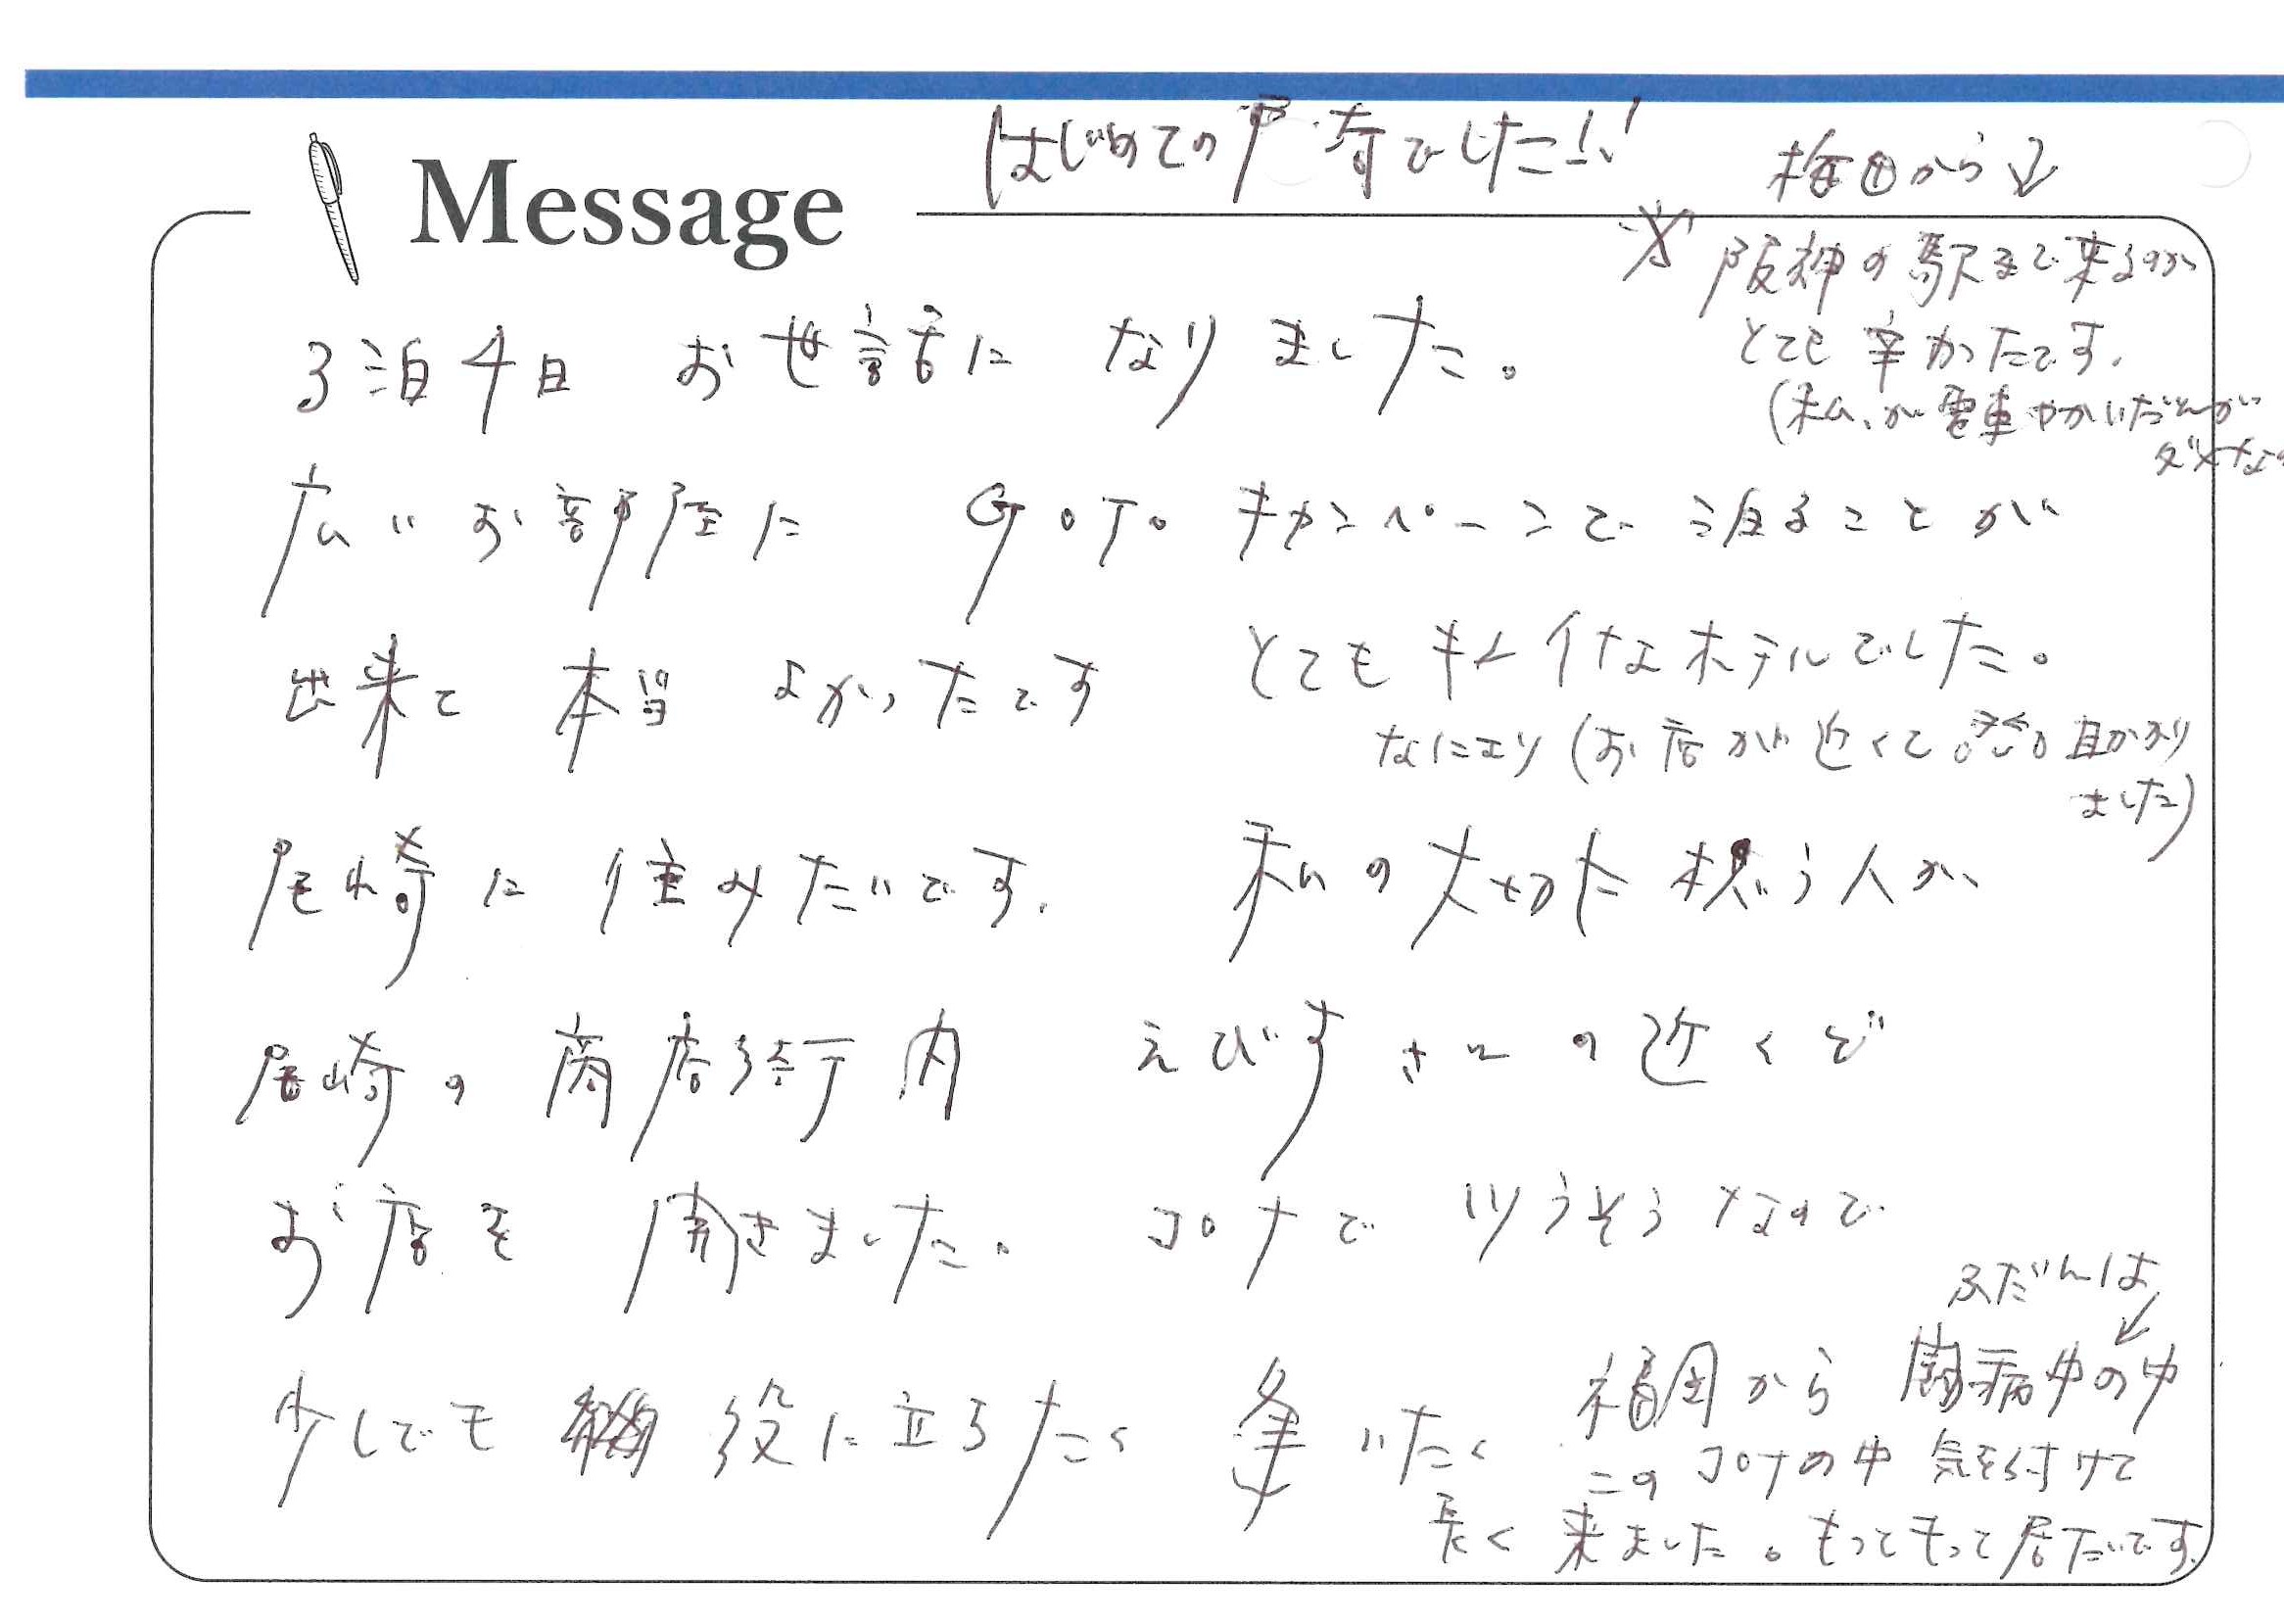 はじめての尼崎でした!!
Message
梅田から↓
※阪神の駅まで来るのが
とても辛かったです。
(私が電車やかいだんが
ダメなの
3泊4日 お世話に なりました。
広いお部屋に GoTo キャンペーンで 泊ることが
出来て 本当 よかったです とてもキレイなホテルでした。
なにより(お店が近くて 助かり
ました)
尾崎に 住みたいです。 私の大切に想う人が、
尾崎の商店街内 えびすさんの近くで
お店を 開きました。 コロナで いろいろなので
少しでも 役に立ちたく 働いたく
ふだんは↓
福岡から 闘病中の中
このコロナの中 気を付けて
長く 来ました。もってもって居たいです。